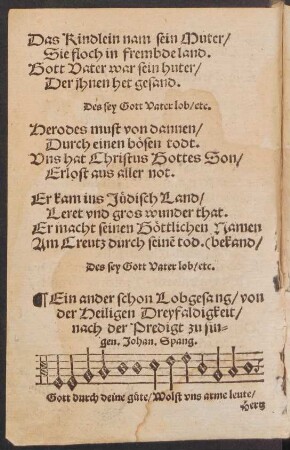 Das Kindlein nam sein Muter/
Sie floch in frembde land.
Gott Vater war sein huter/
Der ihnen het gesand.
Des sey Gott Vater lob/etc.
Herodes must von dannen/
Durch einen bösen todt.
Vns hat Christus Gottes Son/
Erlost aus aller not.
Er kam ins Jüdisch Land/
Leret vnd gros wunder that.
Er macht seinen Göttlichen Namen
Am Creutz durch seinē tod. (bekand/
Des sey Gott Vater lob/etc.
¶ Ein ander schon Lobgesang/von
der Heiligen Dreyfaldigkeit/
nach der Predigt zu sin-
gen. Johan. Spang.
Gott durch deine güte/Wolst vns arme leute/
Hertz